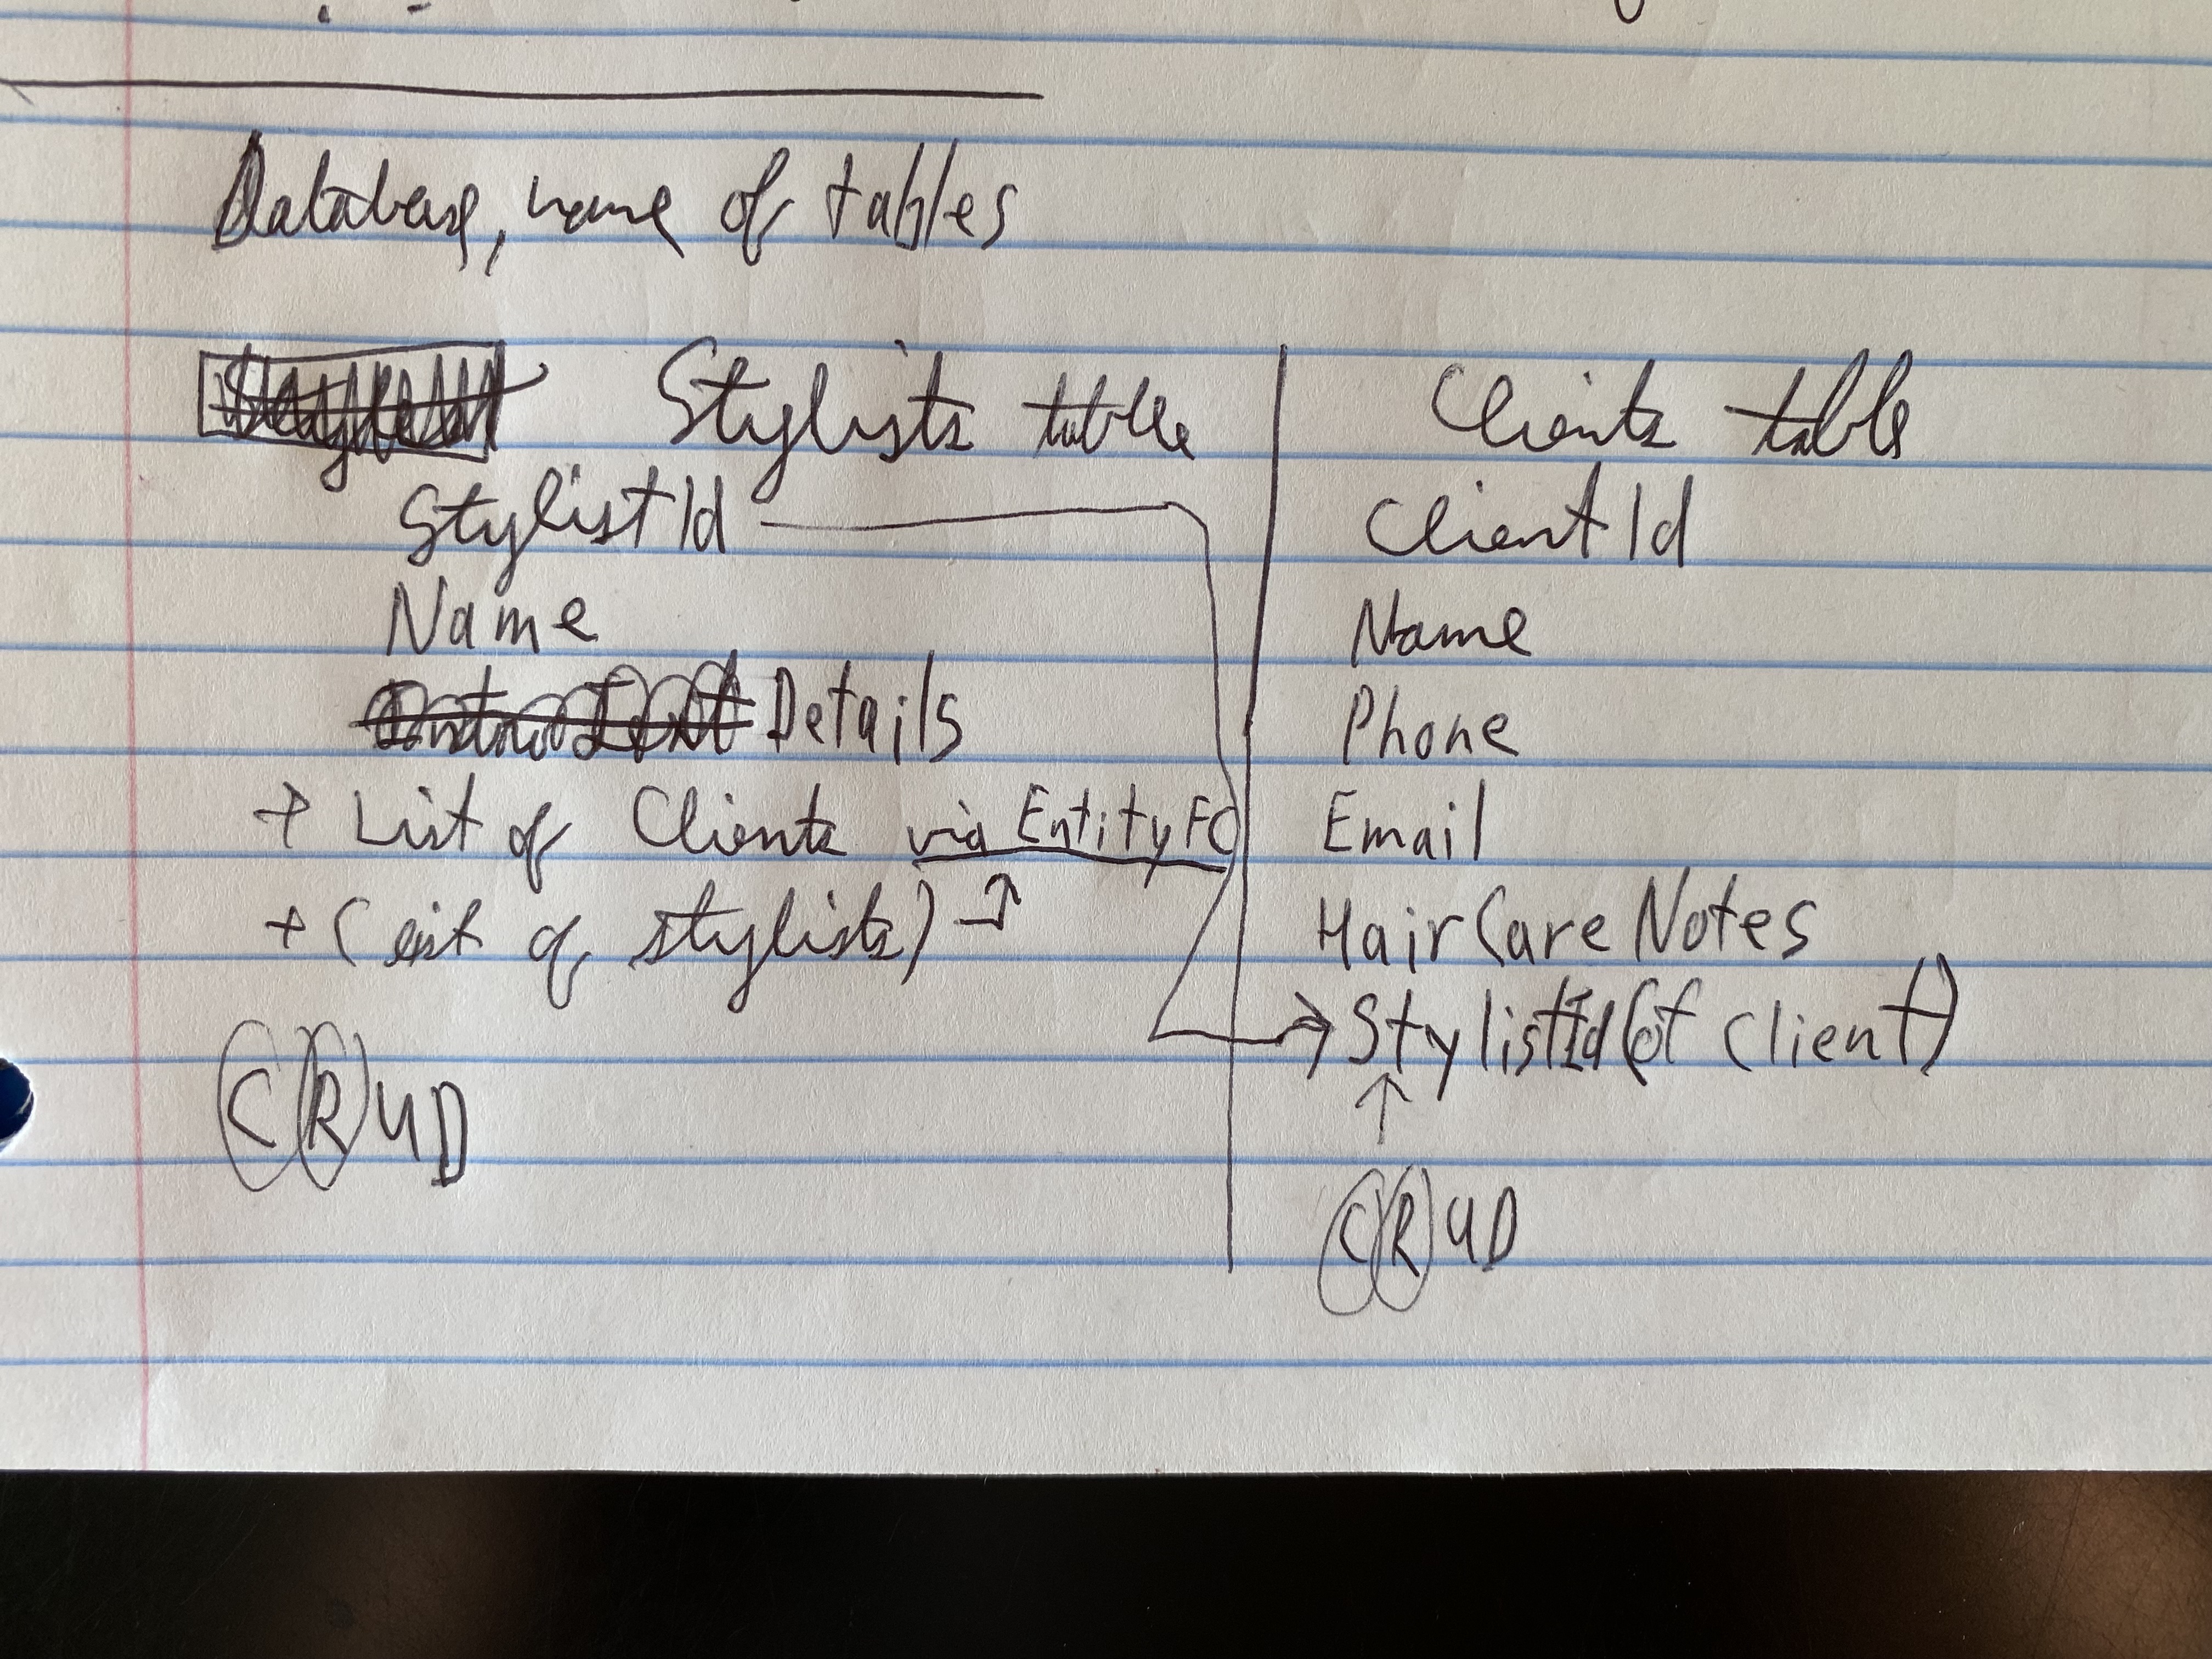 Database, name of tables
Stylists table
StylistId
Name
Details
+ List of Clients via EntityFC
+ (List of stylists)
CRUD
Clients table
ClientId
Name
Phone
Email
HairCareNotes
StylistId (of client)
CRUD